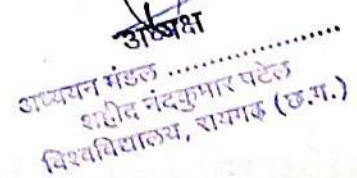 अध्यक्ष
अध्ययन मंडल ......................
शहीद नंदकुमार पटेल
विश्वविद्यालय, रायगढ़ (छ.ग.)